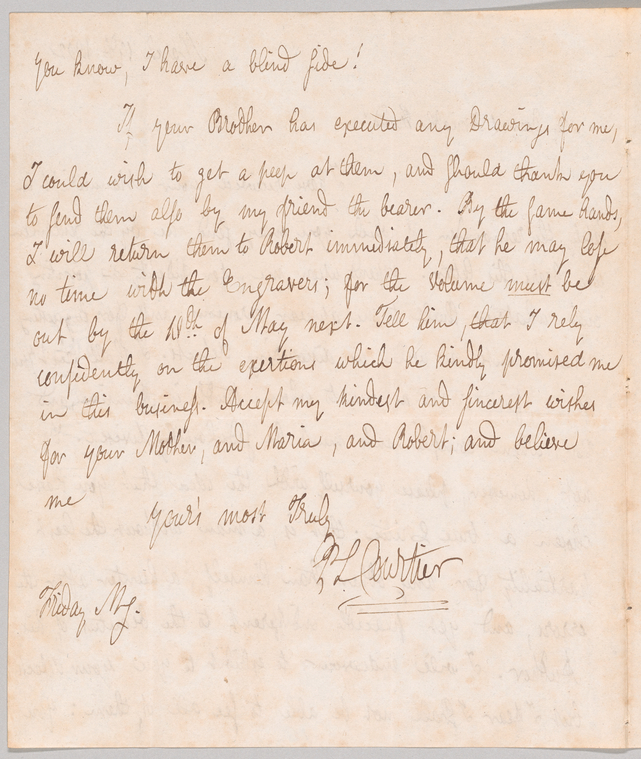 you know, I have a blind side!
If your Brother has executed any Drawings for me,
I could wish to get a peep at them, and should thank you
to send them also by my friend the bearer. By the same hands,
I will return them to Robert immediately, that he may lose
no time with the Engravers; for the volume must be
out by the 18th of May next. Tell him, that I rely
confidently on the exertions which he kindly promised me
in this business. Accept my kindest and sincerest wishes
for your Mother, and Maria, and Robert; and believe
me
your's most Truly
P L Courtier
Friday Mg.